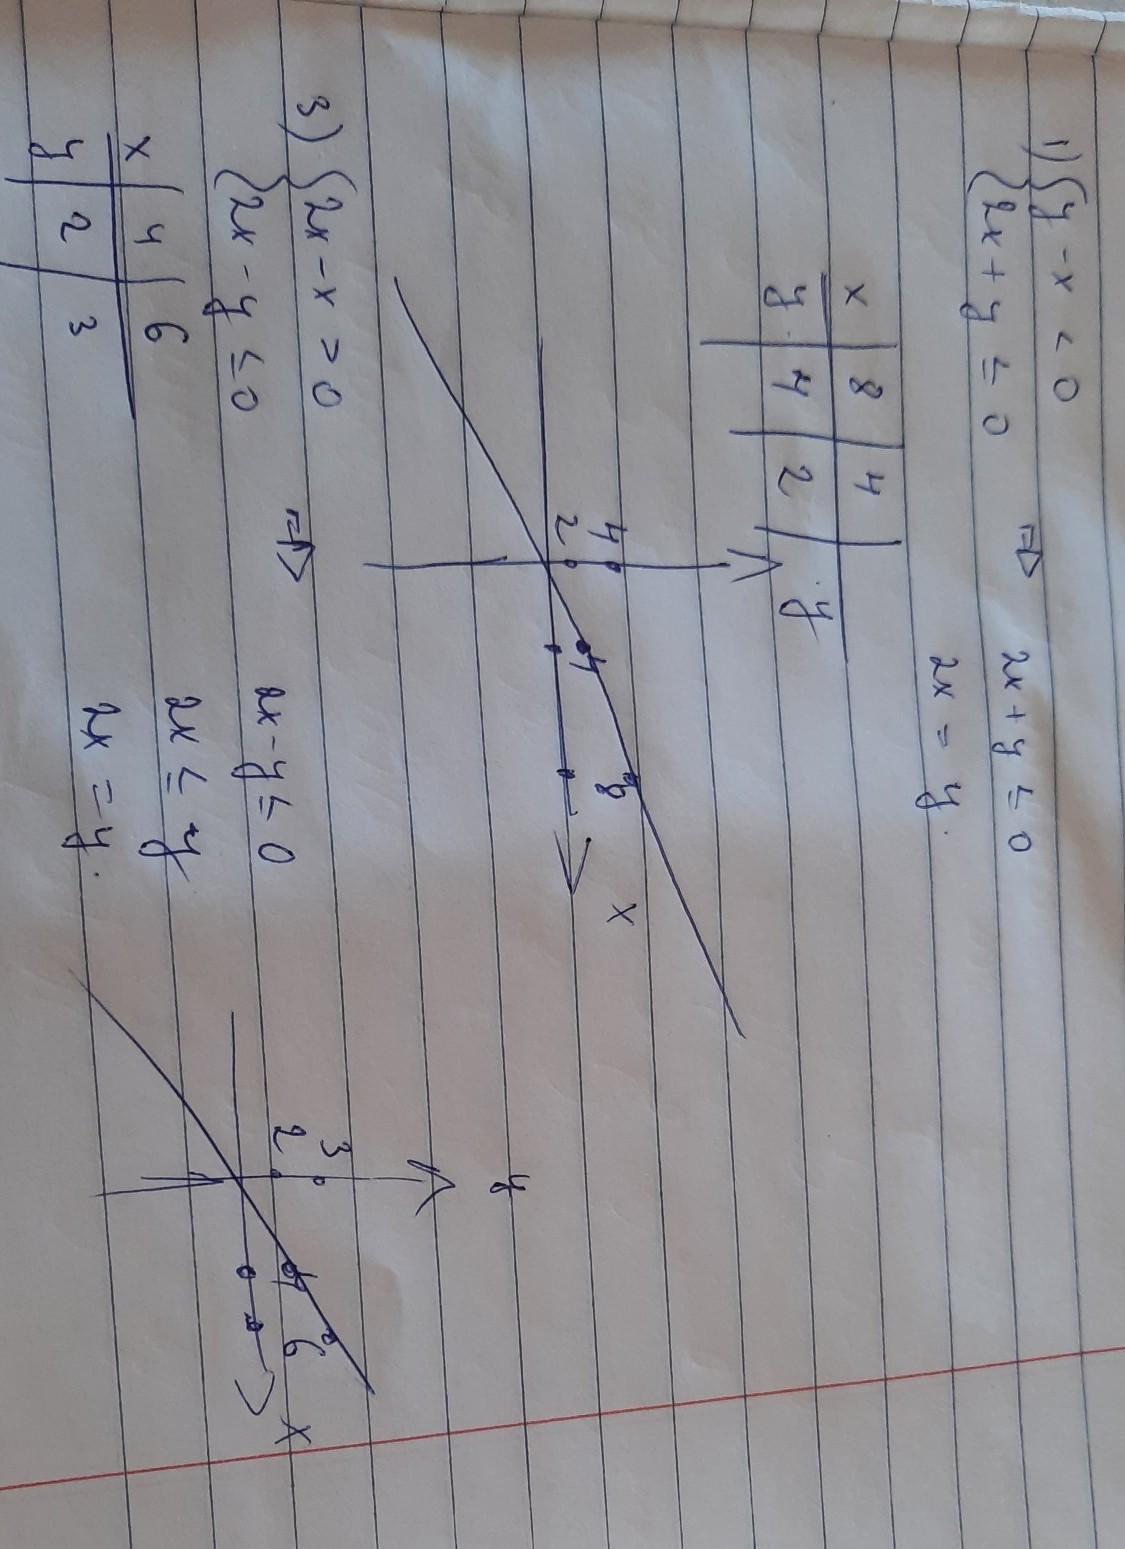 1) { y - x < 0
{ 2x + y ≤ 0
⇒
2x + y ≤ 0
2x = y.
x | 8 | 4 |
y | 4 | 2 |
y
4
2
4
8
x
3) { 2x - x > 0
{ 2x - y ≤ 0
⇒
2x - y ≤ 0
2x ≤ y
2x = y.
x | 4 | 6
y | 2 | 3
y
3
2
4
6
x